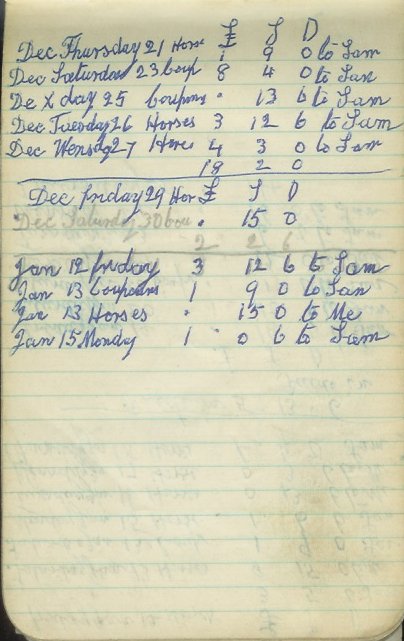 £ S D
Dec Thursday 21 Horse 1 9 0 to Sam
Dec Saturday 23 Coup 8 4 0 to Sam
De X day 25 Coupons . 13 6 to Sam
Dec Tuesday 26 Horses 3 12 6 to Sam
Dec Wensday 27 Horses 4 3 0 to Sam
18 2 0
Dec friday 29 Hor £ S D
Dec Saturday 30 Cou . 15 0
2 2 6
Jan 12 friday 3 12 6 to Sam
Jan 13 Coupons 1 9 0 to Sam
Jan 13 Horses . 15 0 to Me
Jan 15 Monday 1 0 6 to Sam